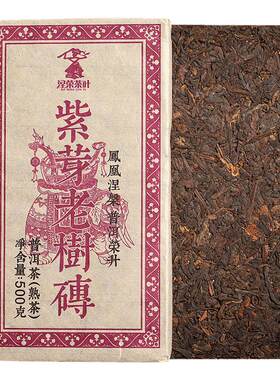 涅荣茶叶
紫芽老樹磚
鳳凰涅槃 普洱榮升
普洱茶(熟茶)
净含量:500克